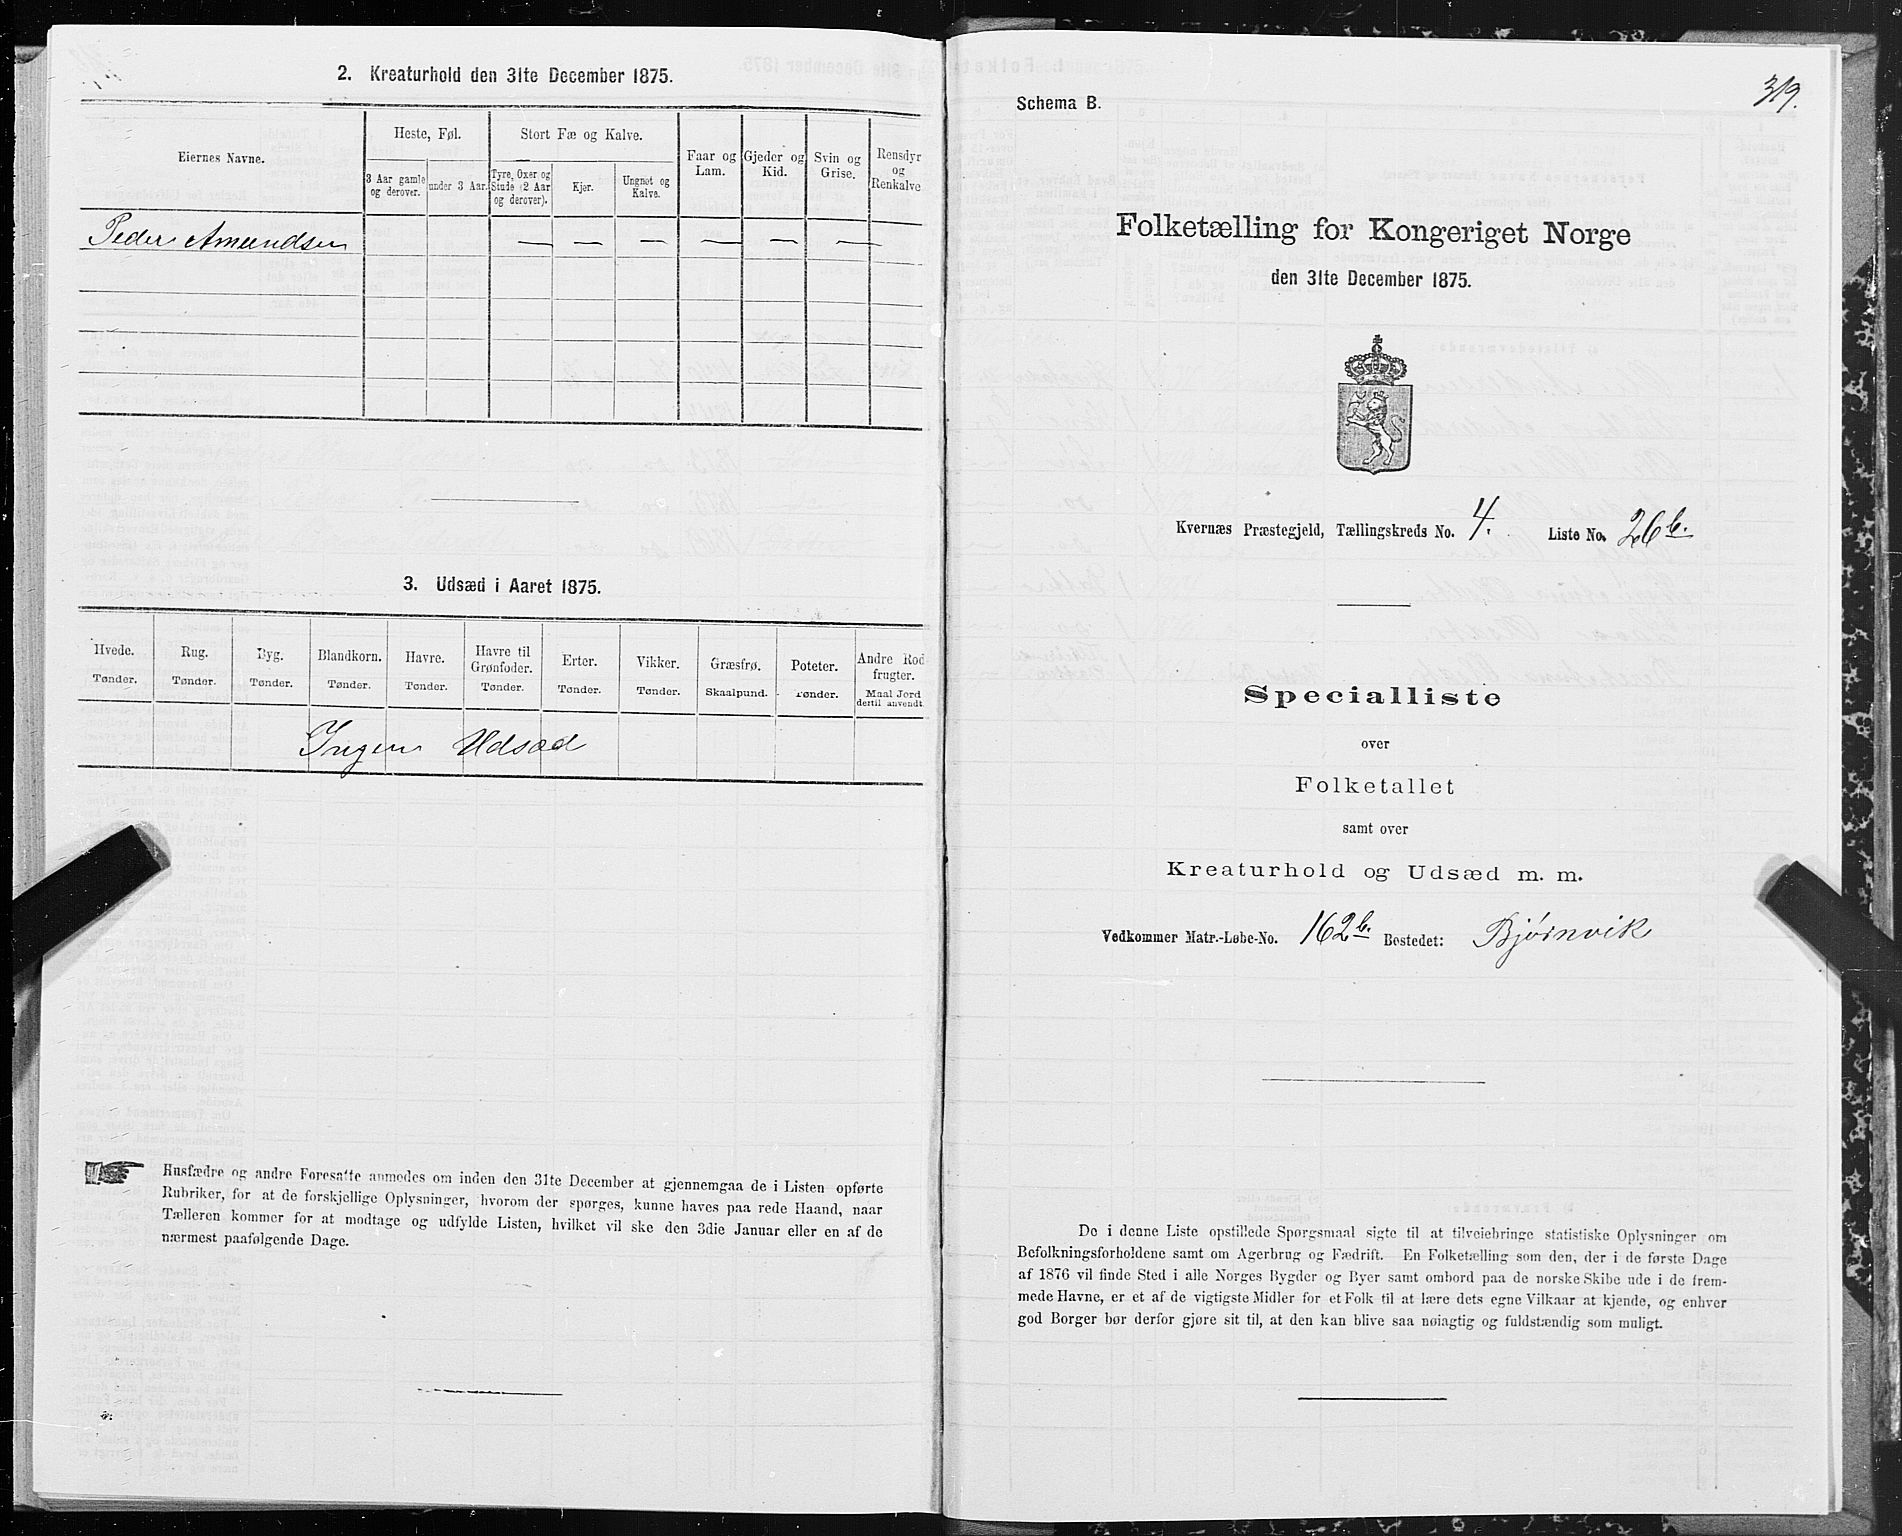 2. Kreaturhold den 31te December 1875.
Eiernes Navne.
Heste, Føl.
Stort Fæ og Kalve.
Faar og Lam.
Gjeder og Kid.
Svin og Grise.
Rensdyr og Renkalve
3 Aar gamle og derover.
under 3 Aar.
Tyre, Oxer og Stude (2 Aar og derover).
Kjør.
Ungnøt og Kalve.
Peder Amundsen — — — — — —
3. Udsæd i Aaret 1875.
Hvede. Rug. Byg. Blandkorn. Havre. Havre til Grønfoder. Erter. Vikker. Græsfrø. Poteter. Andre Rodfrugter.
Tønder. Tønder. Tønder. Tønder. Tønder. Tønder. Tønder. Tønder. Skaalpund. Tønder. Maal Jord dertil anvendt.
Ingen Udsæd
Husfædre og andre Foresatte anmodes om inden den 31te December at gjennemgaa de i Listen opførte
Rubriker, for at de forskjellige Oplysninger, hvorom der spørges, kunne haves paa rede Haand, naar
Tælleren kommer for at modtage og udfylde Listen, hvilket vil ske den 3die Januar eller en af de
nærmest paafølgende Dage.
319.
Schema B.
Folketælling for Kongeriget Norge
den 31te December 1875.
Kvernæs Præstegjeld, Tællingskreds No. 4. Liste No. 26 b.
Specialliste
over
Folketallet
samt over
Kreaturhold og Udsæd m. m.
Vedkommer Matr.-Løbe-No. 162 b. Bostedet: Bjørnvik
De i denne Liste opstillede Spørgsmaal sigte til at tilveiebringe statistiske Oplysninger om
Befolkningsforholdene samt om Agerbrug og Fædrift. En Folketælling som den, der i de første Dage
af 1876 vil finde Sted i alle Norges Bygder og Byer samt ombord paa de norske Skibe ude i de frem-
mede Havne, er et af de vigtigste Midler for et Folk til at lære dets egne Vilkaar at kjende, og enhver
god Borger bør derfor gjøre sit til, at den kan blive saa nøiagtig og fuldstændig som muligt.